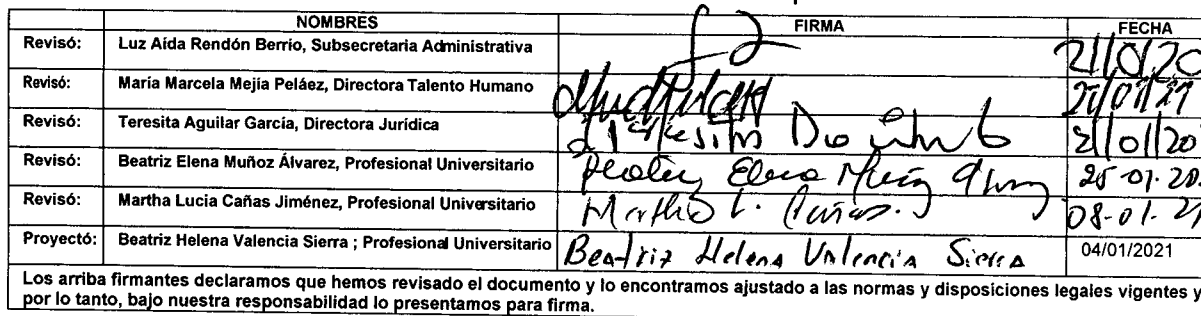 NOMBRES FIRMA FECHA
Revisó: Luz Aída Rendón Berrío, Subsecretaria Administrativa
Revisó: María Marcela Mejía Peláez, Directora Talento Humano
Revisó: Teresita Aguilar García, Directora Jurídica 21/01/20
Revisó: Beatriz Elena Muñoz Álvarez, Profesional Universitario Beatriz Elena Muñoz
Revisó: Martha Lucia Cañas Jiménez, Profesional Universitario Martha L. Cañas. 08-01-21
Proyectó: Beatriz Helena Valencia Sierra ; Profesional Universitario Beatriz Helena Valencia Sierra 04/01/2021
Los arriba firmantes declaramos que hemos revisado el documento y lo encontramos ajustado a las normas y disposiciones legales vigentes y
por lo tanto, bajo nuestra responsabilidad lo presentamos para firma.